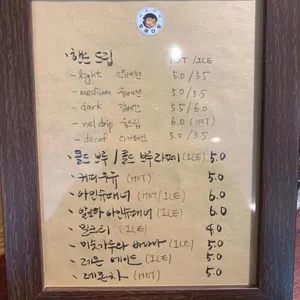 핸드 드립 HOT / ICE
- light 약배전 5.0 / 5.5
- medium 중배전 5.0 / 5.5
- dark 강배전 5.5 / 6.0
- nel drip 융드립 6.0 (HOT)
- decaf 디카페인 5.0 / 5.5
· 콜드 브루 / 콜드 브루 라떼 (ICE) 5.0
· 커피우유 (HOT) 5.0
· 아인슈패너 (HOT / ICE) 6.0
· 아인슈패너 (ICE) 6.0
· 밀크티 (ICE) 4.0
· 미숫가루와 바나나 (ICE) 5.0
· 레몬 에이드 (ICE) 5.0
· 레몬차 (HOT) 5.0